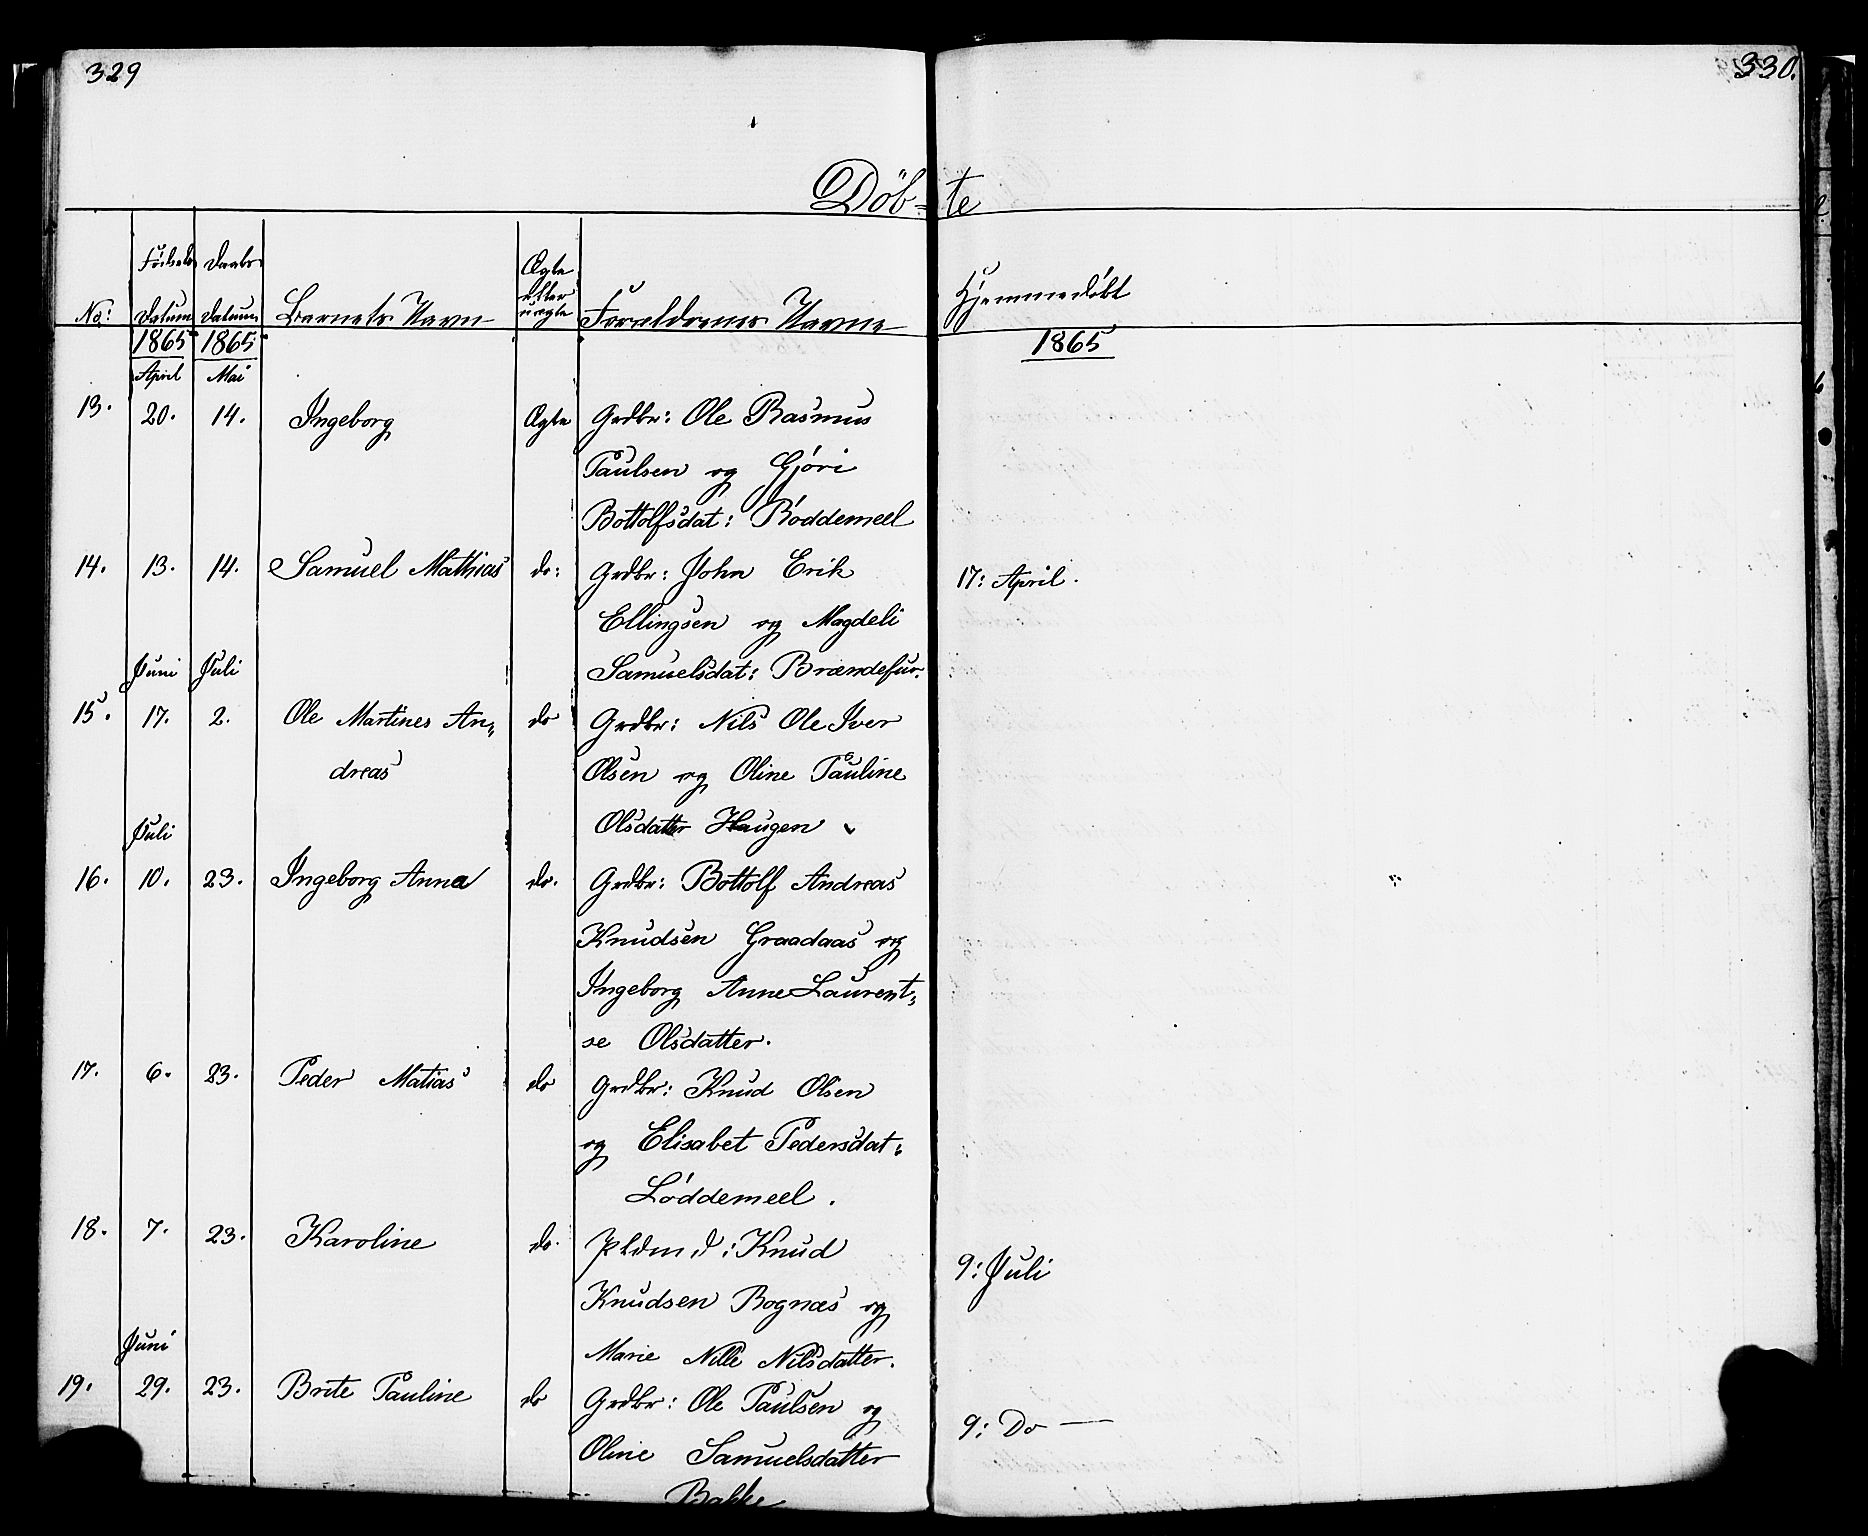 329
330.
Døb-te
No:
Fødsels Datum
Daabs Datum
Barnets Navn
Ægte eller uægte
Forældrenes Navne
Hjemmedøbt
1865 1865 1865
April Mai
13. 20. 14. Ingeborg Ægte Grdbr: Ole Rasmus
Paulsen og Gjøri
Bottolfsdat: Bøddemeel
14. 13. 14. Samuel Mathias do: Grdbr: John Erik 17: April.
Ellingsen og Magdeli
Juni Juli Samuelsdat: Brændefur.
15. 17. 2. Ole Martines An- do Grdbr: Nils Ole Iver
dreas Olsen og Oline Pauline
Juli Olsdatter Haugen
16. 10. 23. Ingeborg Anna do. Grdbr: Bottolf Andreas
Knudsen Graadaas og
Ingeborg Anne Laurent-
se Olsdatter.
17. 6. 23. Peder Matias do Grdbr: Knud Olsen
og Elisabet Pedersdat:
Løddemeel.
18. 7. 23. Karoline do. Pldmd: Knud 9: Juli
Knudsen Bognæs og
Juni Marie Nille Nilsdatter.
19. 29. 23. Brite Pauline do Grdbr: Ole Paulsen og 9: Do —
Oline Samuelsdatter
Bakke